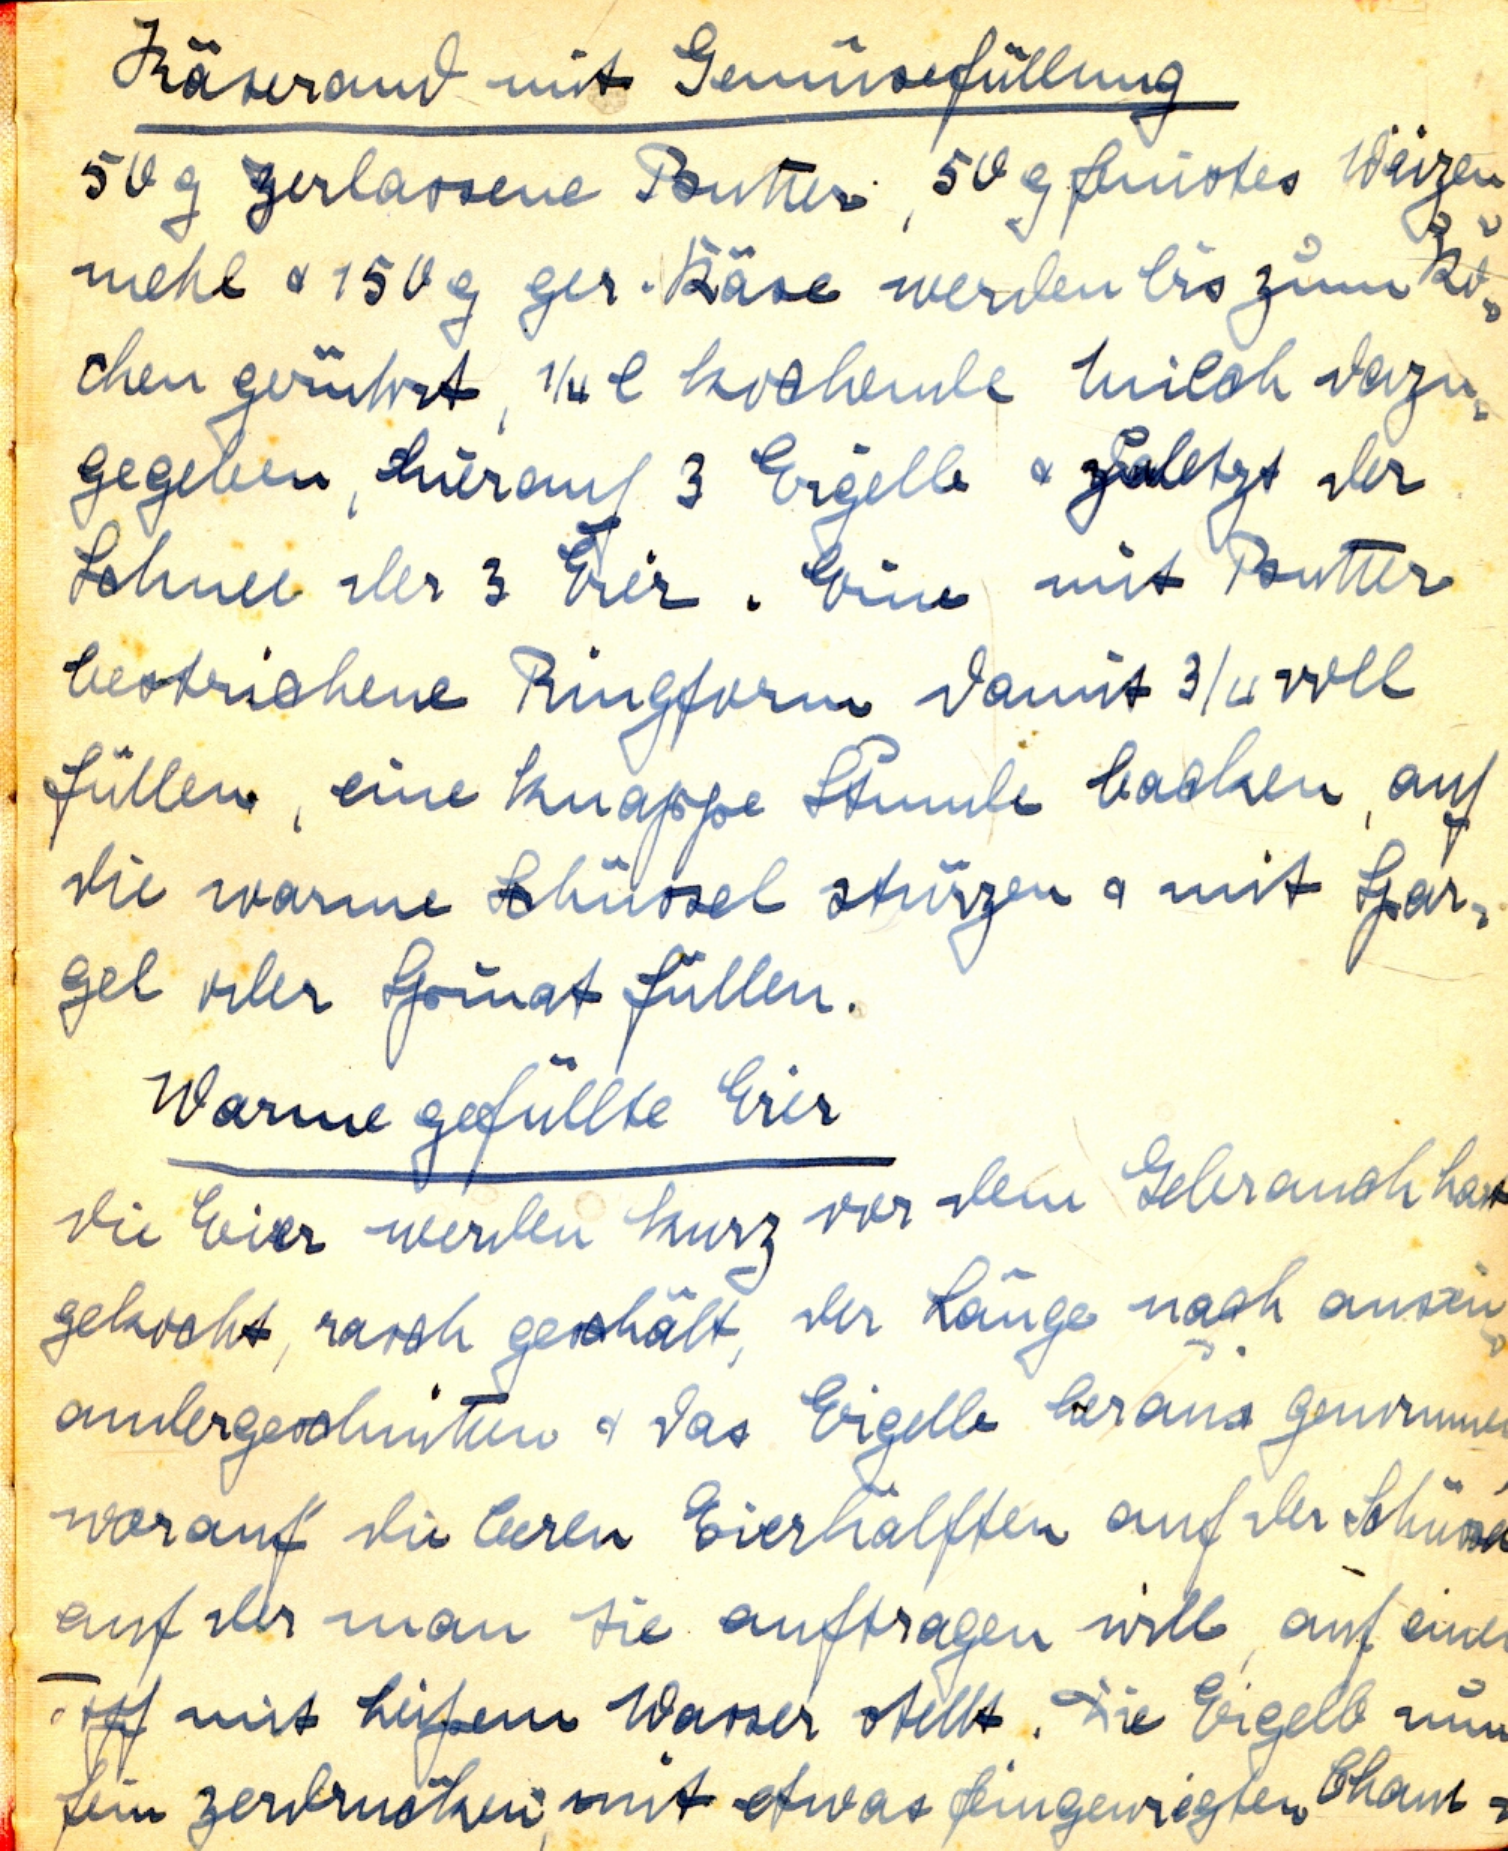 Käserand mit Gemüsefüllung
50 g zerlassene Butter, 50 g feinstes Weizen
mehl & 150 g ger. Käse werden bis zum Ko-
chen gerührt, 1/4 l kochende Milch dazu-
gegeben, hierauf 3 Eigelb & zuletzt der
Schnee der 3 Eier. Eine mit Butter
bestrichene Ringform damit 3/4 voll
füllen, eine knappe Stunde backen, auf
die warme Schüssel stürzen & mit Spar-
gel oder Spinat füllen.
Warme gefüllte Eier
die Eier werden kurz vor dem Gebrauch hart
gekocht, rasch geschält, der Länge nach ausein-
andergeschnitten & das Eigelb heraus genommen
worauf die leeren Eierhälften auf der Schüssel
auf der man sie auftragen will, auf einen
Topf mit heißem Wasser stellt. Die Eigelb nun
fein zerdrücken, mit etwas feingewiegten Cham-